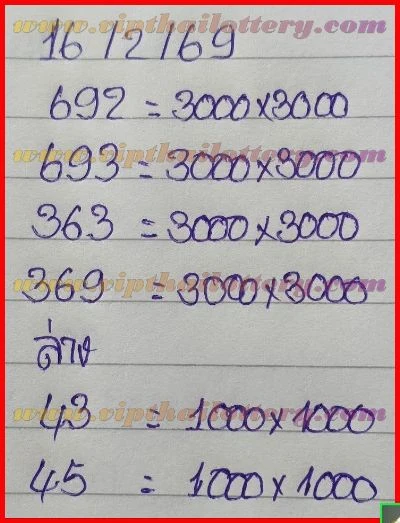 www.vipthailottery.com
16/2/69
692 = 3000x3000
www.vipthailottery.com
693 = 3000x3000
363 = 3000x3000
www.vipthailottery.com
369 = 3000x3000
ล่าง
www.vipthailottery.com
43 = 1000x1000
45 = 1000x1000